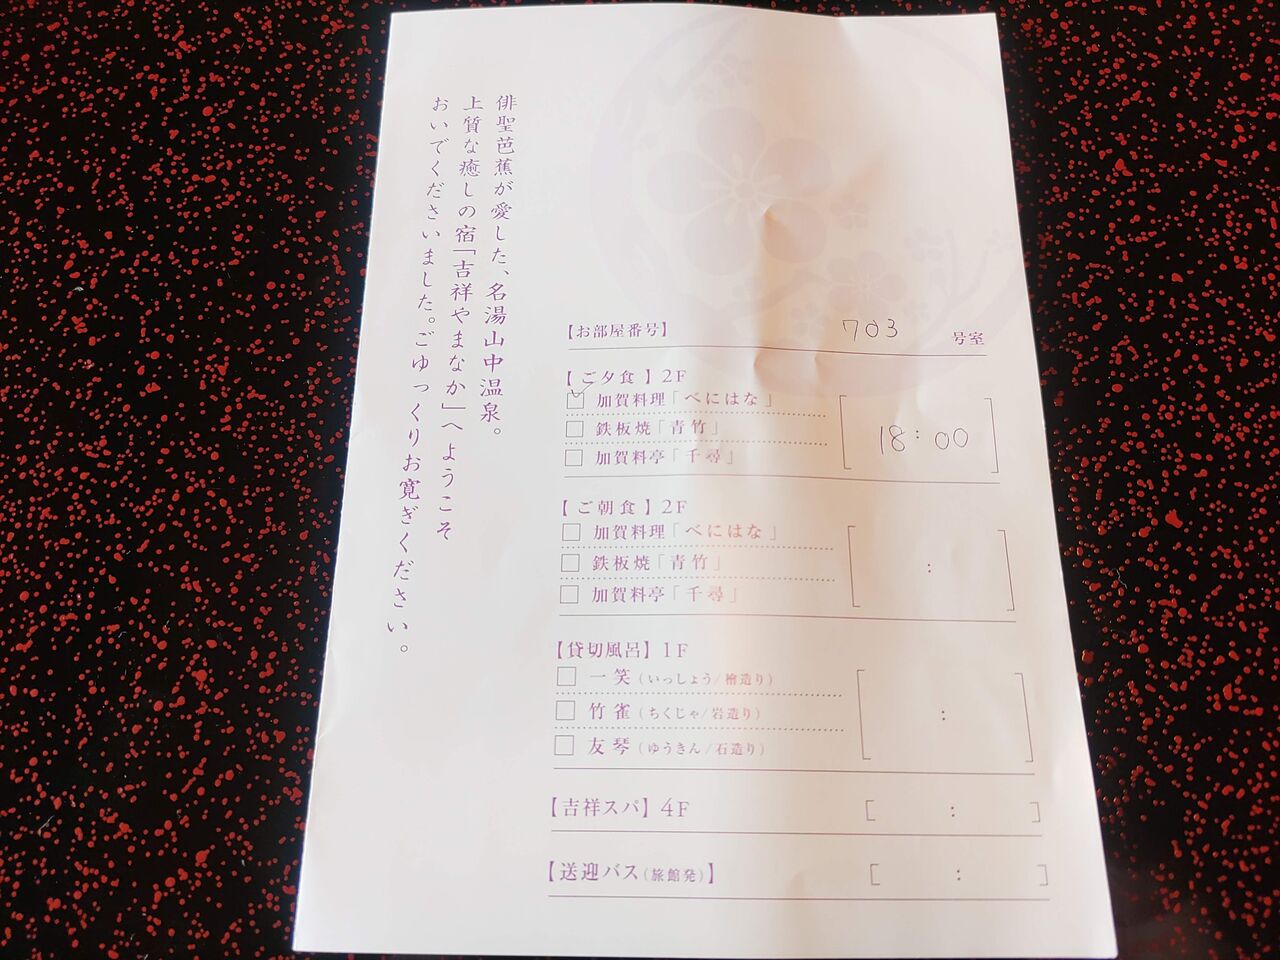 俳聖芭蕉が愛した、名湯山中温泉。
上質な癒しの宿「吉祥やまなか」へようこそ
おいでくださいました。ごゆっくりお寛ぎください。
【お部屋番号】 703 号室
【ご夕食】2F
加賀料理「べにはな」
鉄板焼「青竹」
加賀料亭「千尋」
[ 18:00 ]
【ご朝食】2F
加賀料理「べにはな」
鉄板焼「青竹」
加賀料亭「千尋」
[ : ]
【貸切風呂】1F
一笑(いっしょう/檜造り)
竹雀(ちくじゃ/岩造り)
友琴(ゆうきん/石造り)
[ : ]
【吉祥スパ】4F [ : ]
【送迎バス(旅館発)】 [ : ]